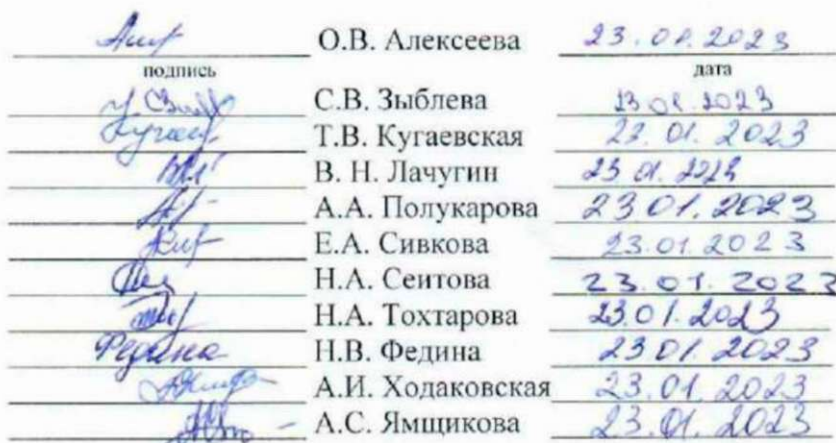 О.В. Алексеева 23.01.2023
подпись дата
С.В. Зыблева 23.01.2023
Кугаев Т.В. Кугаевская 23.01.2023
В. Н. Лачугин 23 01.2023
А.А. Полукарова 23 01.2023
Е.А. Сивкова 23.01.2023
Н.А. Сеитова 23.01.2023
Н.А. Тохтарова 23.01.2023
Федина Н.В. Федина 23 01.2023
А.И. Ходаковская 23.01.2023
А.С. Ямщикова 23.01.2023